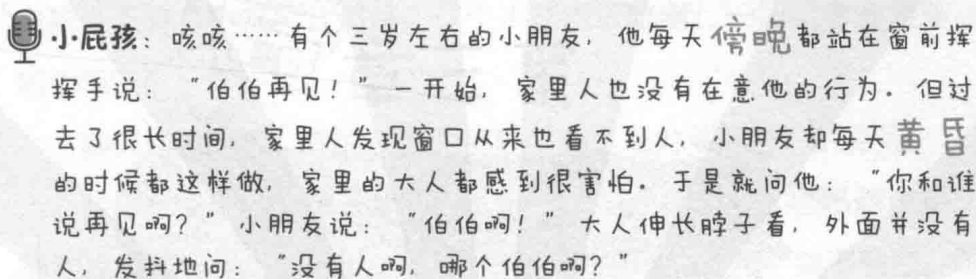 小屁孩：咳咳……有个三岁左右的小朋友，他每天傍晚都站在窗前挥
挥手说：“伯伯再见！”一开始，家里人也没有在意他的行为。但过
去了很长时间，家里人发现窗口从来也看不到人，小朋友却每天黄昏
的时候都这样做，家里的大人都感到很害怕。于是就问他：“你和谁
说再见啊？”小朋友说：“伯伯啊！”大人伸长脖子看，外面并没有
人，发抖地问：“没有人啊，哪个伯伯啊？”